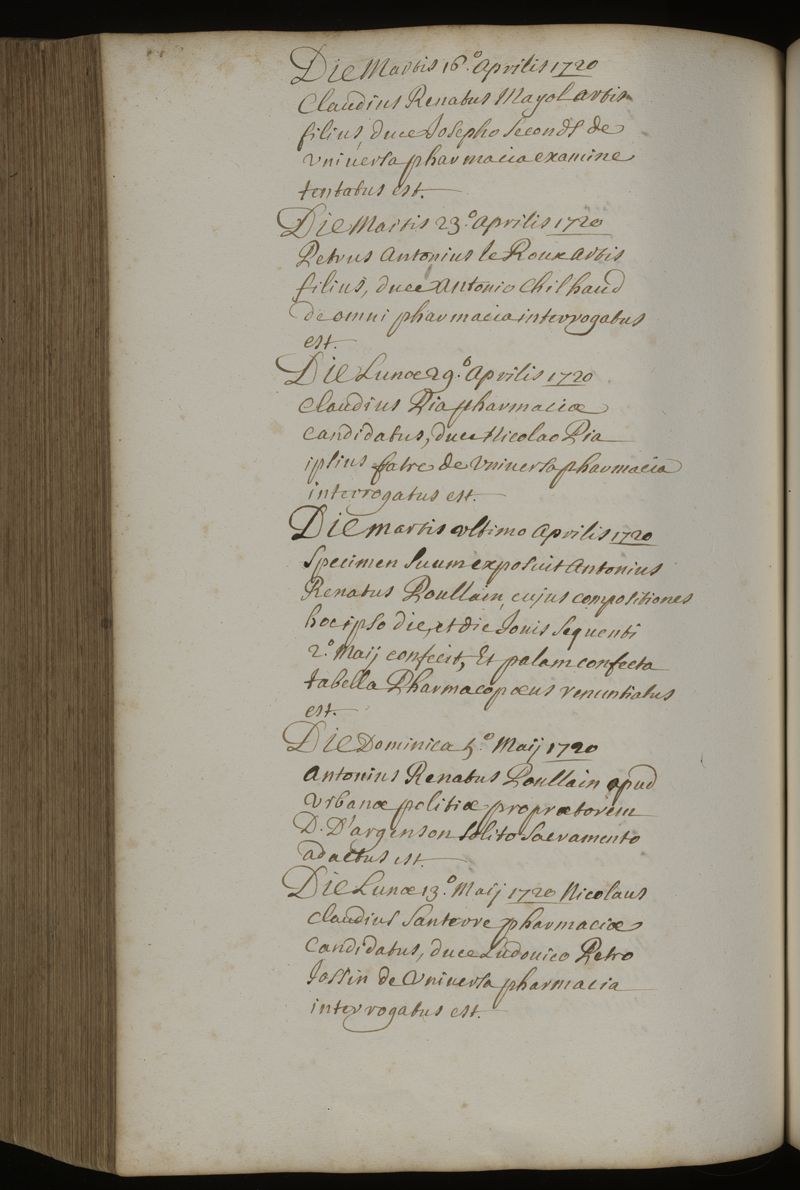 Die Martis 16.° Aprilis 1720
Claudius Renatus Mayol artis
filius, duce Josepho Second de
Vniversa pharmacia examine
tentatus est.
Die Martis 23.° Aprilis 1720
Petrus Antonius le Roux artis
filius, duce Antonio Chilhaud
de omni pharmacia interrogatus
est.
Die Lunæ 29.° Aprilis 1720
Claudius Pia pharmaciæ
candidatus, duce Nicolao Pia
ipsius fatre de Vniversa pharmacia
interrogatus est.
Die martis ultimo Aprilis 1720
Specimen suum exposuit Antonius
Renatus Poullain, cujus compositiones
hoc ipso die, et die Jovis sequenti
2.° Maij confecit, Et palam confecta
tabella Pharmacopæus renuntiatus
est.
Die Dominica 5.° Maij 1720
Antonius Renatus Poullain apud
Vrbanæ politiæ proprætorem
D. D'argenson solito Sacramento
adactus est.
Die Lunæ 13.° Maij 1720 Nicolaus
Claudius Santerre pharmaciæ
candidatus, duce Ludovico Petro
Jossin de Vniversa pharmacia
interrogatus est.